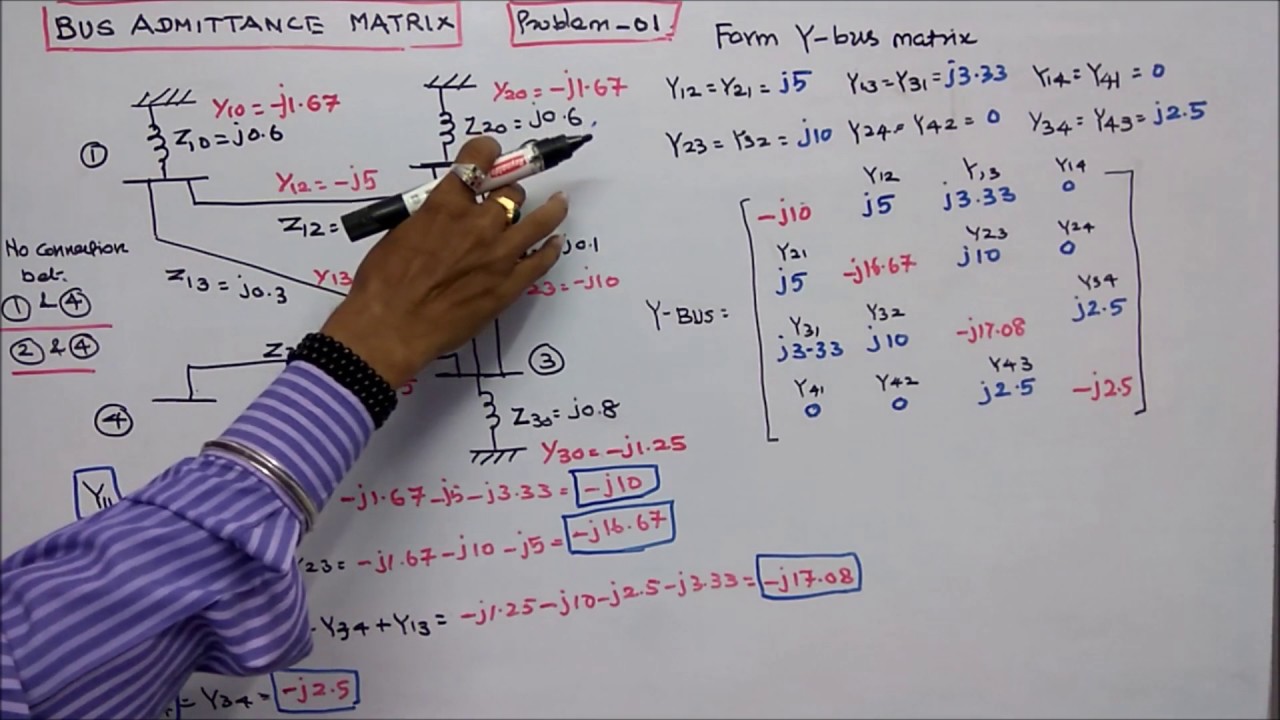 BUS ADMITTANCE MATRIX
Problem-01
Form Y-bus matrix
Y10 = -j1.67
Z10 = j0.6
Y20 = -j1.67
Z20 = j0.6
①
Y12 = -j5
Z12 =
No connection
bet.
① & ④
② & ④
Z13 = j0.3
Y13
j0.1
23 = -j10
③
④
Z30 = j0.8
Y30 = -j1.25
Y12 = Y21 = j5 Y13 = Y31 = j3.33 Y14 = Y41 = 0
Y23 = Y32 = j10 Y24 = Y42 = 0 Y34 = Y43 = j2.5
Y12 Y13 Y14
-j10 j5 j3.33 0
Y21 Y23 Y24
j5 -j16.67 j10 0
Y-BUS =
Y31 Y32 Y34
j3.33 j10 -j17.08 j2.5
Y41 Y42 Y43
0 0 j2.5 -j2.5
Y11
-j1.67 -j5 -j3.33 = -j10
Y23 = -j1.67 -j10 -j5 = -j16.67
Y34 + Y13 = -j1.25 -j10 -j2.5 -j3.33 = -j17.08
= Y34 = -j2.5